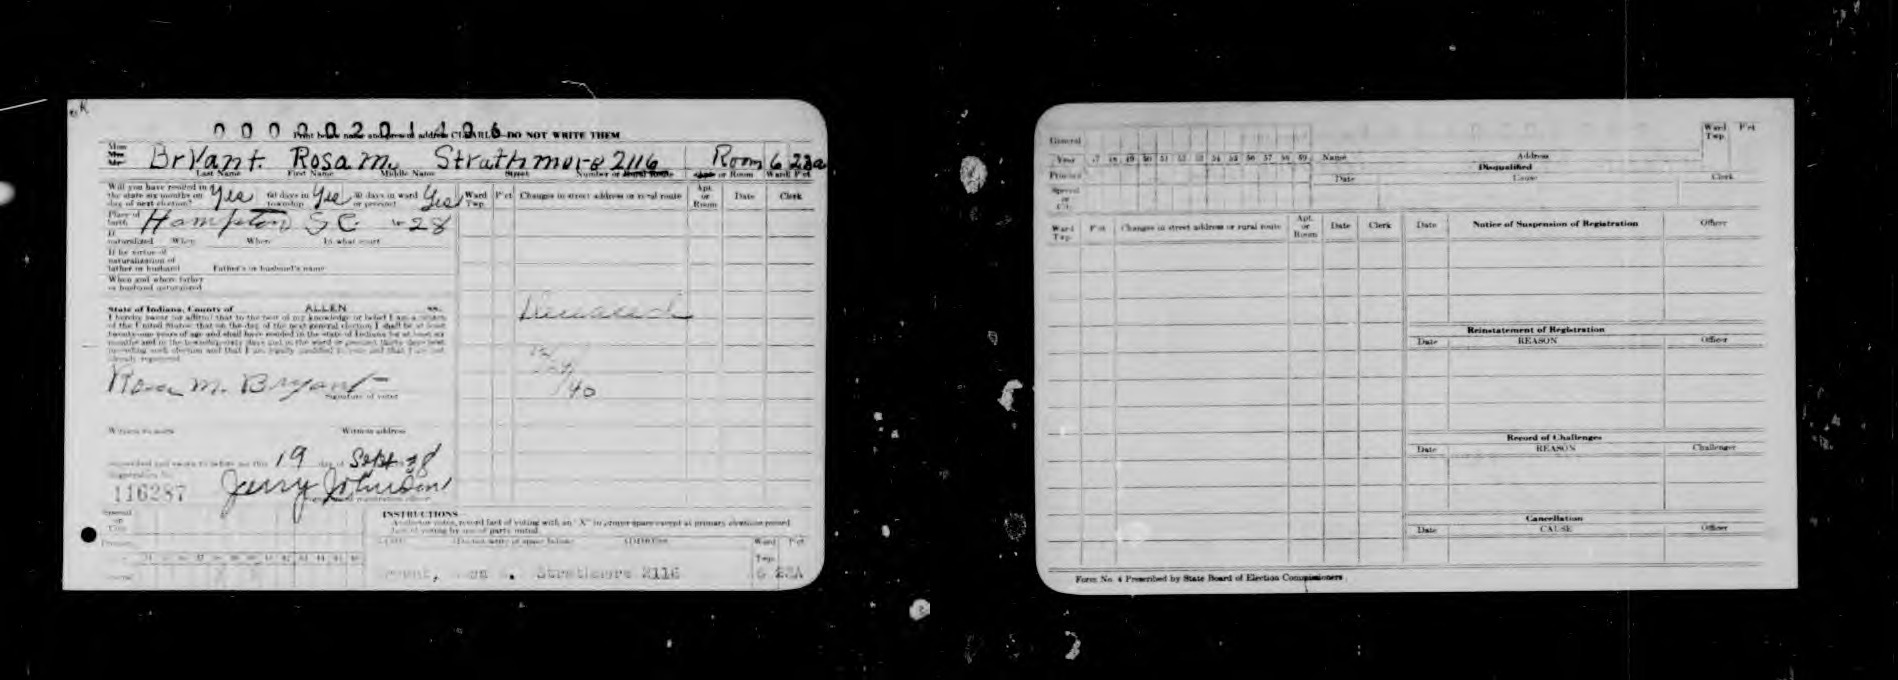 OK
0 0 0 0 2 0 1 4 0 6
Print below name and present address CLEARLY DO NOT WRITE THEM
Miss
Mrs
Mr
Bryant Rosa M. Strathmore 2116 Room 6 23a
Last Name First Name Middle Name Street Number or Rural Route Apt. or Room Ward Pct
Will you have resided in the state six months on day of next election? Yes 60 days in township Yes 30 days in ward or precinct Yes
Ward Twp. Pct Changes in street address or rural route Apt. or Room Date Clerk
Place of birth Hampton S C 28
If naturalized When Where In what court
If by virtue of naturalization of father or husband Father's or husband's name
When and where father or husband naturalized
State of Indiana, County of ALLEN ss.
I hereby swear (or affirm) that to the best of my knowledge or belief I am a citizen
of the United States; that on the day of the next general election I shall be at least
twenty-one years of age and shall have resided in the state of Indiana for at least six
months and in the township sixty days and in the ward or precinct thirty days next
preceding such election and that I am legally qualified to vote and that I am not
already registered
Deceased
12/24/40
Rosa M. Bryant
Signature of voter
Witness to mark Witness address
Subscribed and sworn to before me this 19 day of Sept 38
Registration No.
116287 Jerry Johnson
registration officer
INSTRUCTIONS
As elector votes, record fact of voting with an "X" in proper space except at primary elections record
fact of voting by use of party initial
Special or City
Primary
Do not write in space below
Ward Twp. Pct
Strathmore 2116 6 23A
General
Year 47 48 49 50 51 52 53 54 55 56 57 58 59
Primary
Special or City
Name Address
Ward Twp. Pct
Disqualified
Date Cause Clerk
Ward Twp. Pct Changes in street address or rural route Apt. or Room Date Clerk
Date Notice of Suspension of Registration Officer
Reinstatement of Registration
Date REASON Officer
Record of Challenges
Date REASON Challenger
Cancellation
Date CAUSE Officer
Form No. 4 Prescribed by State Board of Election Commissioners